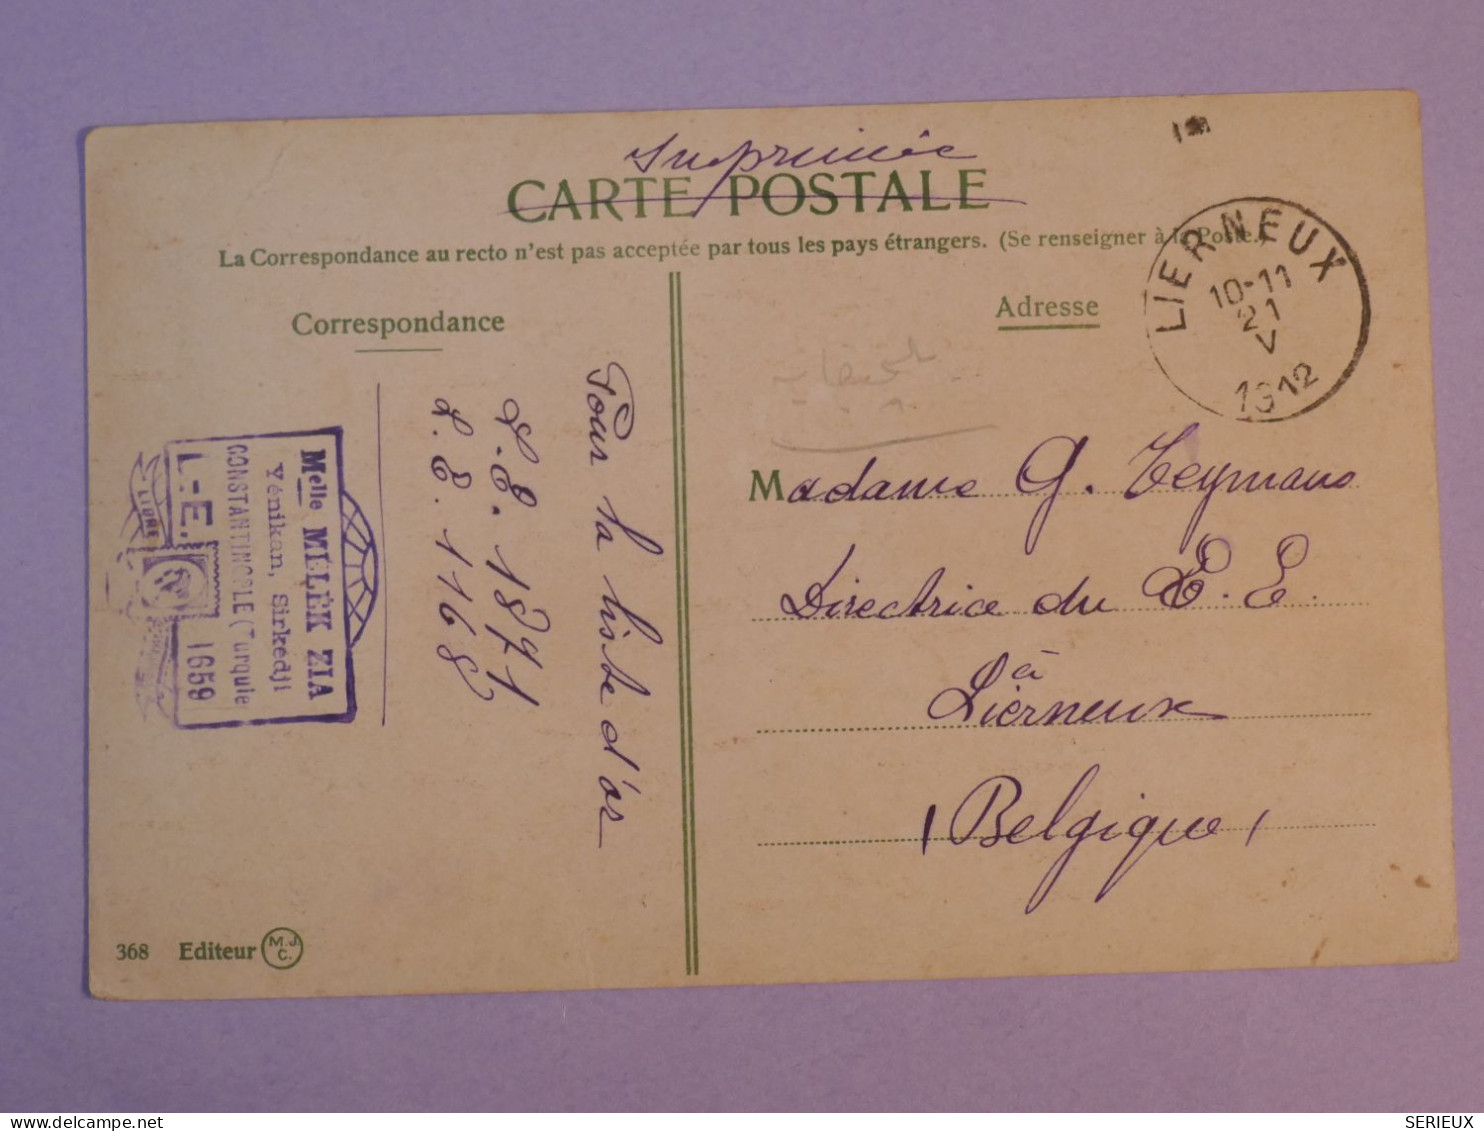 Imprimée
CARTE POSTALE
La Correspondance au recto n'est pas acceptée par tous les pays étrangers. (Se renseigner à la Poste.)
Correspondance
Adresse
LIERNEUX
10-11
21
V
1912
Pour la liste d'or
L.E. 1871
L.E. 1168
Melle MÉLEK ZIA
Yénikan, Sirkédji
CONSTANTINOPLE (Turquie
L.-E. 1659
LIBRE
Madame G. Teymans
Directrice du L. E.
à
Lierneux
(Belgique)
368 Editeur M.J.C.
delcampe.net
SERIEUX